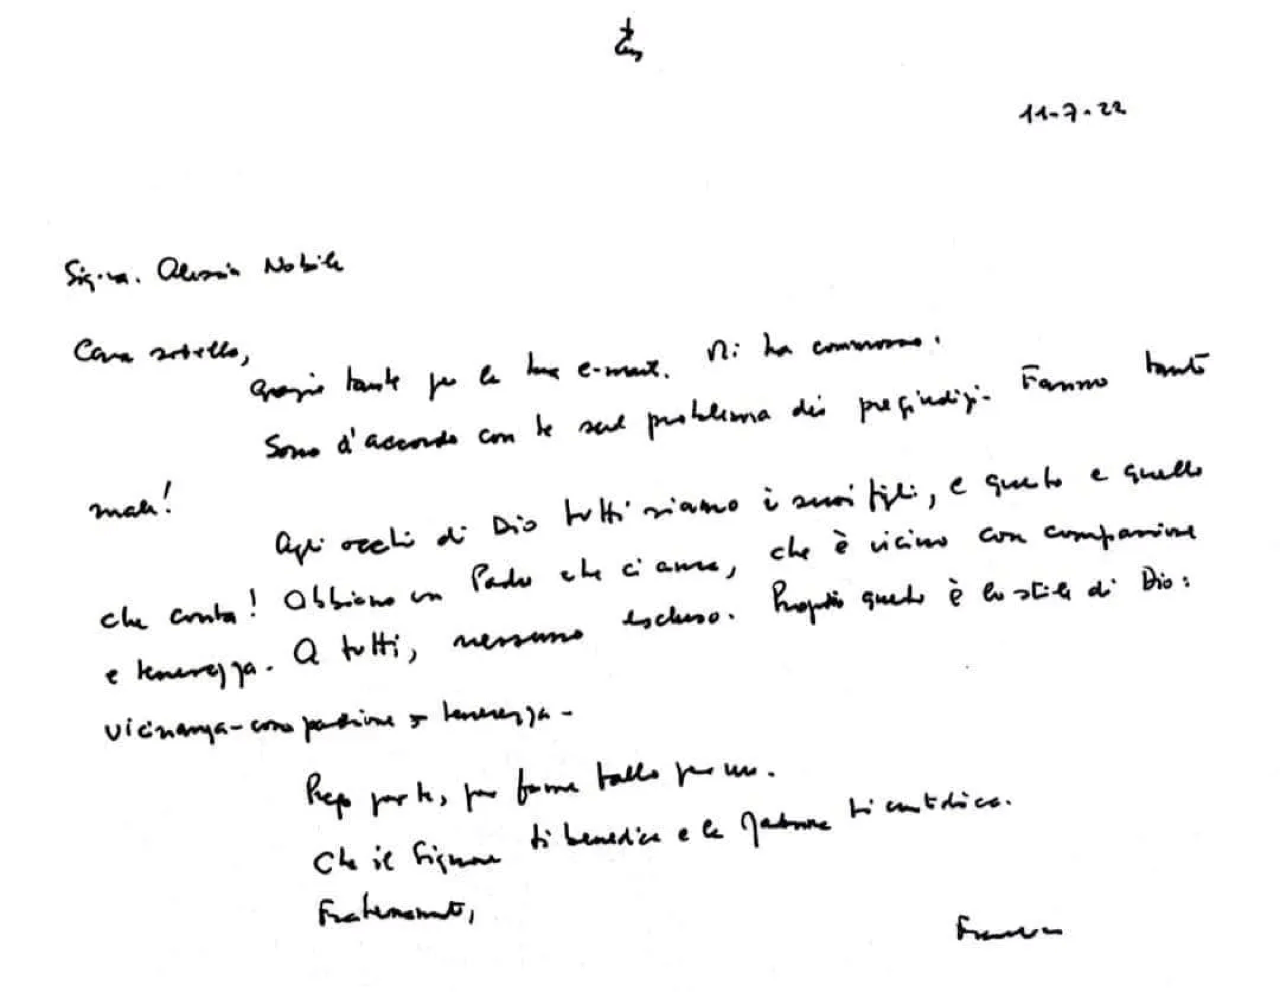 11-7-22
Sig.ra. Alessia Nobile
Cara sorella,
grazie tante per la tua e-mail. Mi ha commosso.
Sono d'accordo con te sul problema dei pregiudizi. Fanno tanto
male!
Agli occhi di Dio tutti siamo i suoi figli, e questo è quello
che conta! Abbiamo un Padre che ci ama, che è vicino con compassione
e tenerezza. A tutti, nessuno escluso. Proprio questo è lo stile di Dio:
vicinanza-compassione e tenerezza-
Prego per te, per favore fallo per me.
Che il Signore ti benedica e la Madonna ti custodisca.
Fraternamente,
Francesco